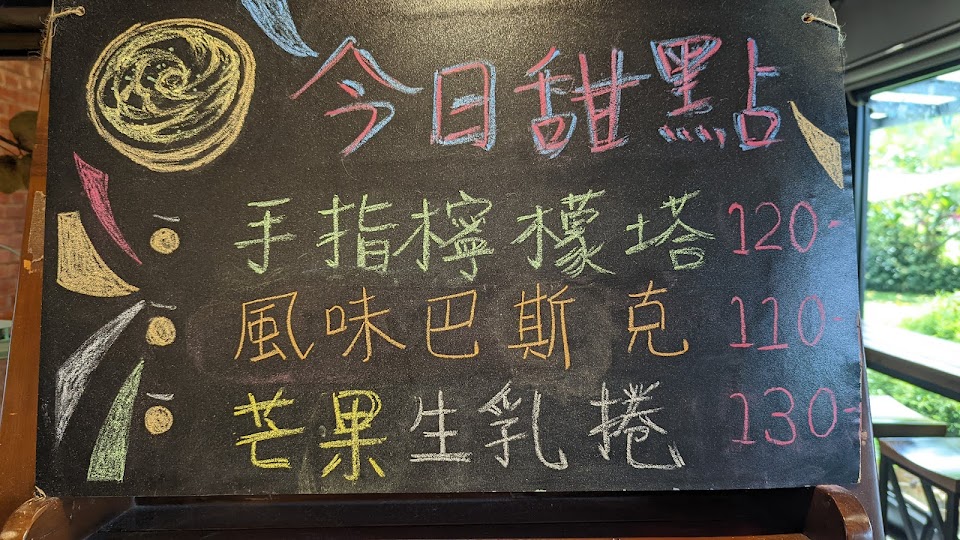 今日甜點
手指檸檬塔 120-
風味巴斯克 110-
芒果生乳捲 130-